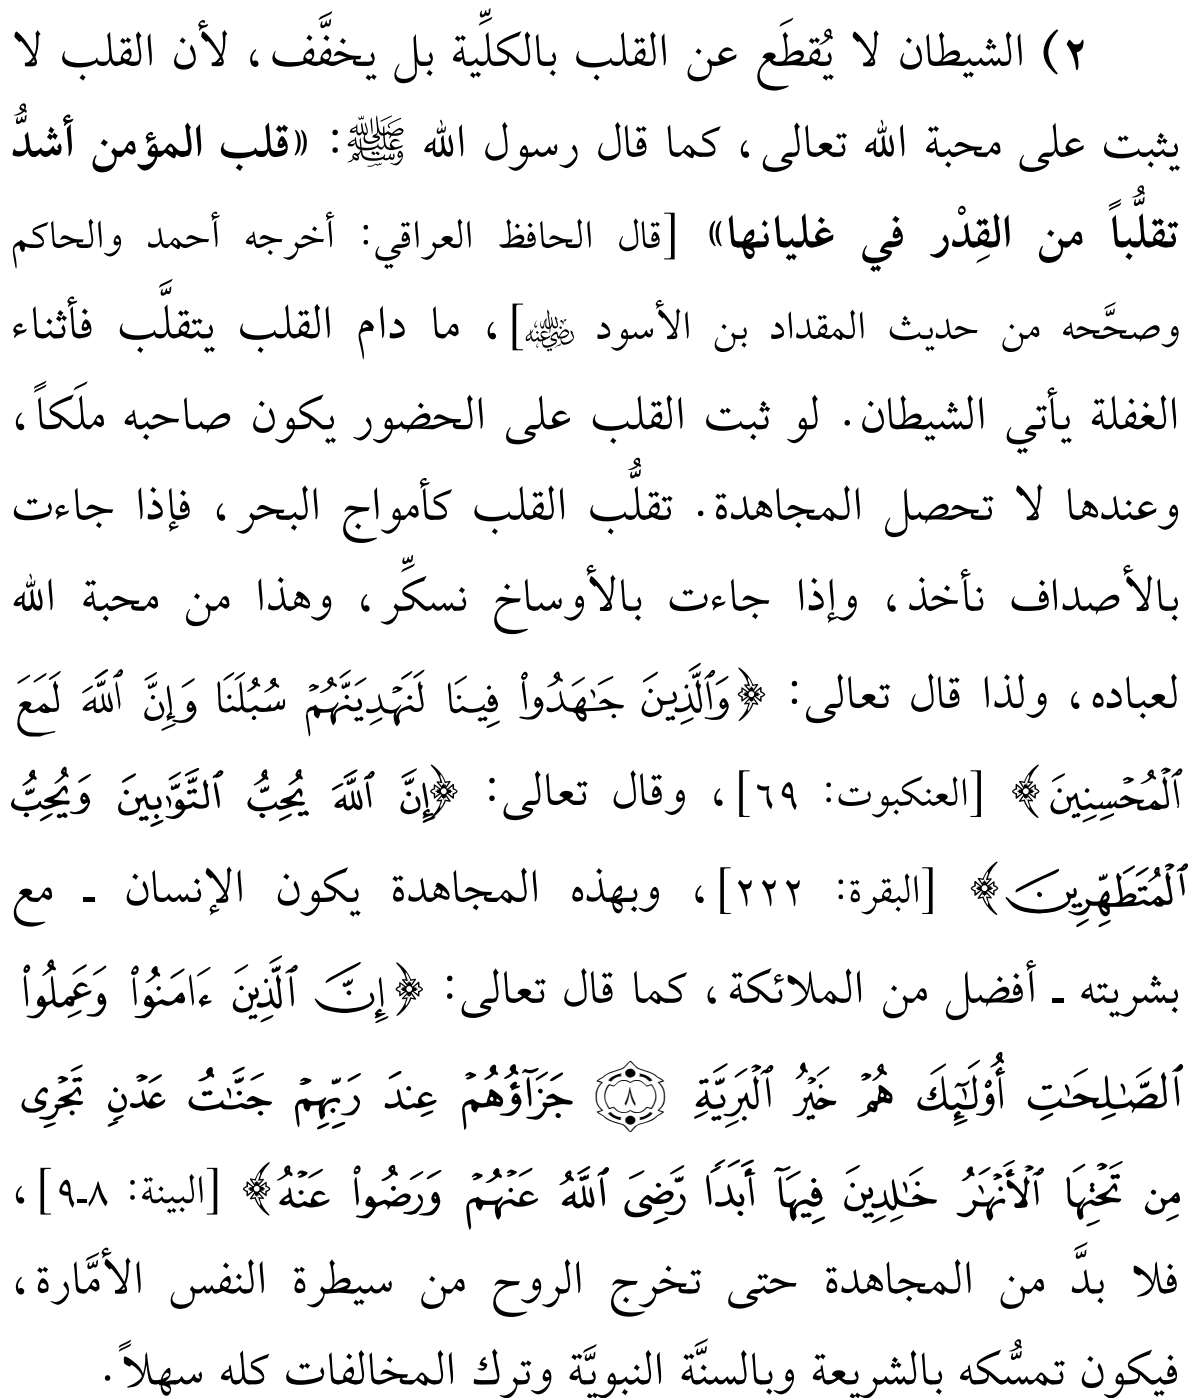 ٢) الشيطان لا يُقطَع عن القلب بالكلِّية بل يخفَّف، لأن القلب لا
يثبت على محبة الله تعالى، كما قال رسول الله ﷺ: «قلب المؤمن أشدُّ
تقلُّباً من القِدْر في غليانها» [قال الحافظ العراقي: أخرجه أحمد والحاكم
وصحَّحه من حديث المقداد بن الأسود رضي الله عنه]، ما دام القلب يتقلَّب فأثناء
الغفلة يأتي الشيطان. لو ثبت القلب على الحضور يكون صاحبه ملَكاً،
وعندها لا تحصل المجاهدة. تقلُّب القلب كأمواج البحر، فإذا جاءت
بالأصداف نأخذ، وإذا جاءت بالأوساخ نسكِّر، وهذا من محبة الله
لعباده، ولذا قال تعالى: ﴿وَٱلَّذِينَ جَـٰهَدُوا۟ فِينَا لَنَهْدِيَنَّهُمْ سُبُلَنَا وَإِنَّ ٱللَّهَ لَمَعَ
ٱلْمُحْسِنِينَ﴾ [العنكبوت: ٦٩]، وقال تعالى: ﴿إِنَّ ٱللَّهَ يُحِبُّ ٱلتَّوَّٰبِينَ وَيُحِبُّ
ٱلْمُتَطَهِّرِينَ﴾ [البقرة: ٢٢٢]، وبهذه المجاهدة يكون الإنسان ـ مع
بشريته ـ أفضل من الملائكة، كما قال تعالى: ﴿إِنَّ ٱلَّذِينَ ءَامَنُوا۟ وَعَمِلُوا۟
ٱلصَّـٰلِحَـٰتِ أُو۟لَـٰٓئِكَ هُمْ خَيْرُ ٱلْبَرِيَّةِ ۝٨ جَزَآؤُهُمْ عِندَ رَبِّهِمْ جَنَّـٰتُ عَدْنٍ تَجْرِى
مِن تَحْتِهَا ٱلْأَنْهَـٰرُ خَـٰلِدِينَ فِيهَآ أَبَدًا رَّضِىَ ٱللَّهُ عَنْهُمْ وَرَضُوا۟ عَنْهُ﴾ [البينة: ٨ـ٩]،
فلا بدَّ من المجاهدة حتى تخرج الروح من سيطرة النفس الأمَّارة،
فيكون تمسُّكه بالشريعة وبالسنَّة النبويَّة وترك المخالفات كله سهلاً.